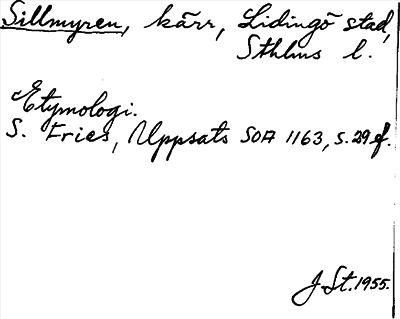 Sillmyren, kärr, Lidingö stad,
Sthlms l.
Etymologi.
S. Fries, Uppsats SOA 1163, s. 29 f.
J St. 1955.